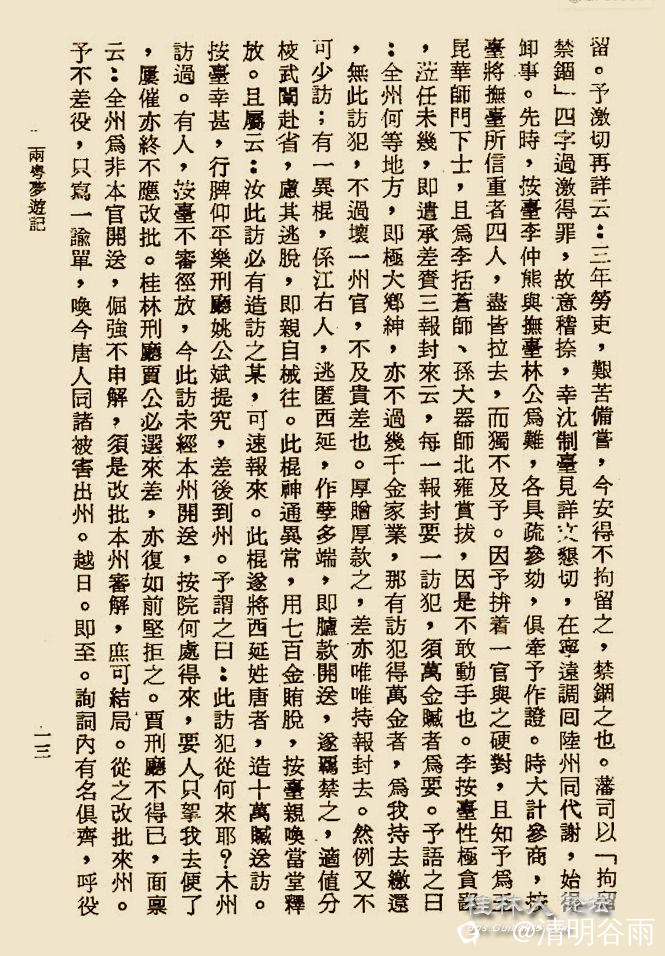 留。予激切再詳云：三年勞吏，艱苦備嘗，今安得不拘留之，禁錮之也。藩司以「拘留
禁錮」四字過激得罪，故意稽捺，幸沈制臺見詳文懇切，在寧遠調囘陸州同代謝，始得
卸事。先時，按臺李仲熊與撫臺林公爲難，各具疏參劾，俱牽予作證。時大計參商，按
臺將撫臺所信重者四人，盡皆拉去，而獨不及予。因予拚着一官與之硬對，且知予爲王
昆華師門下士，且爲李括蒼師、孫大器師北雍賞拔，因是不敢動手也。李按臺性極貪鄙
，涖任未幾，即遣承差賫三報封來云，每一報封要一訪犯，須萬金贓者爲要。予語之曰
：全州何等地方，即極大鄕紳，亦不過幾千金家業，那有訪犯得萬金者，爲我持去繳還
，無此訪犯，不過壞一州官，不及貴差也。厚贈厚款之，差亦唯唯持報封去。然例又不
可少訪；有一異棍，係江右人，逃匿西延，作孽多端，即臚款開送，遂覊禁之，適值分
校武闈赴省，慮其逃脫，即親自械往。此棍神通異常，用七百金賄脫，按臺親喚當堂釋
放。且屬云：汝此訪必有造訪之某，可速報來。此棍遂將西延姓唐者，造十萬贓送訪。
按臺幸甚，行牌仰平樂刑廳姚公斌提究，差後到州。予謂之曰：此訪犯從何來耶？木州
訪過。有人，按臺不審徑放，今此訪未經本州開送，按院何處得來，要人只挐我去便了
，屢催亦終不應改批。桂林刑廳賈公必選來差，亦復如前堅拒之。賈刑廳不得已，面稟
云：全州爲非本官開送，倔強不申解，須是改批本州審解，庶可結局。從之改批來州。
予不差役，只寫一諭單，喚今唐人同諸被害出州。越日。即至。詢詞內有名俱齊，呼役
兩粵夢遊記
一三
桂林人論壇
@清明谷雨